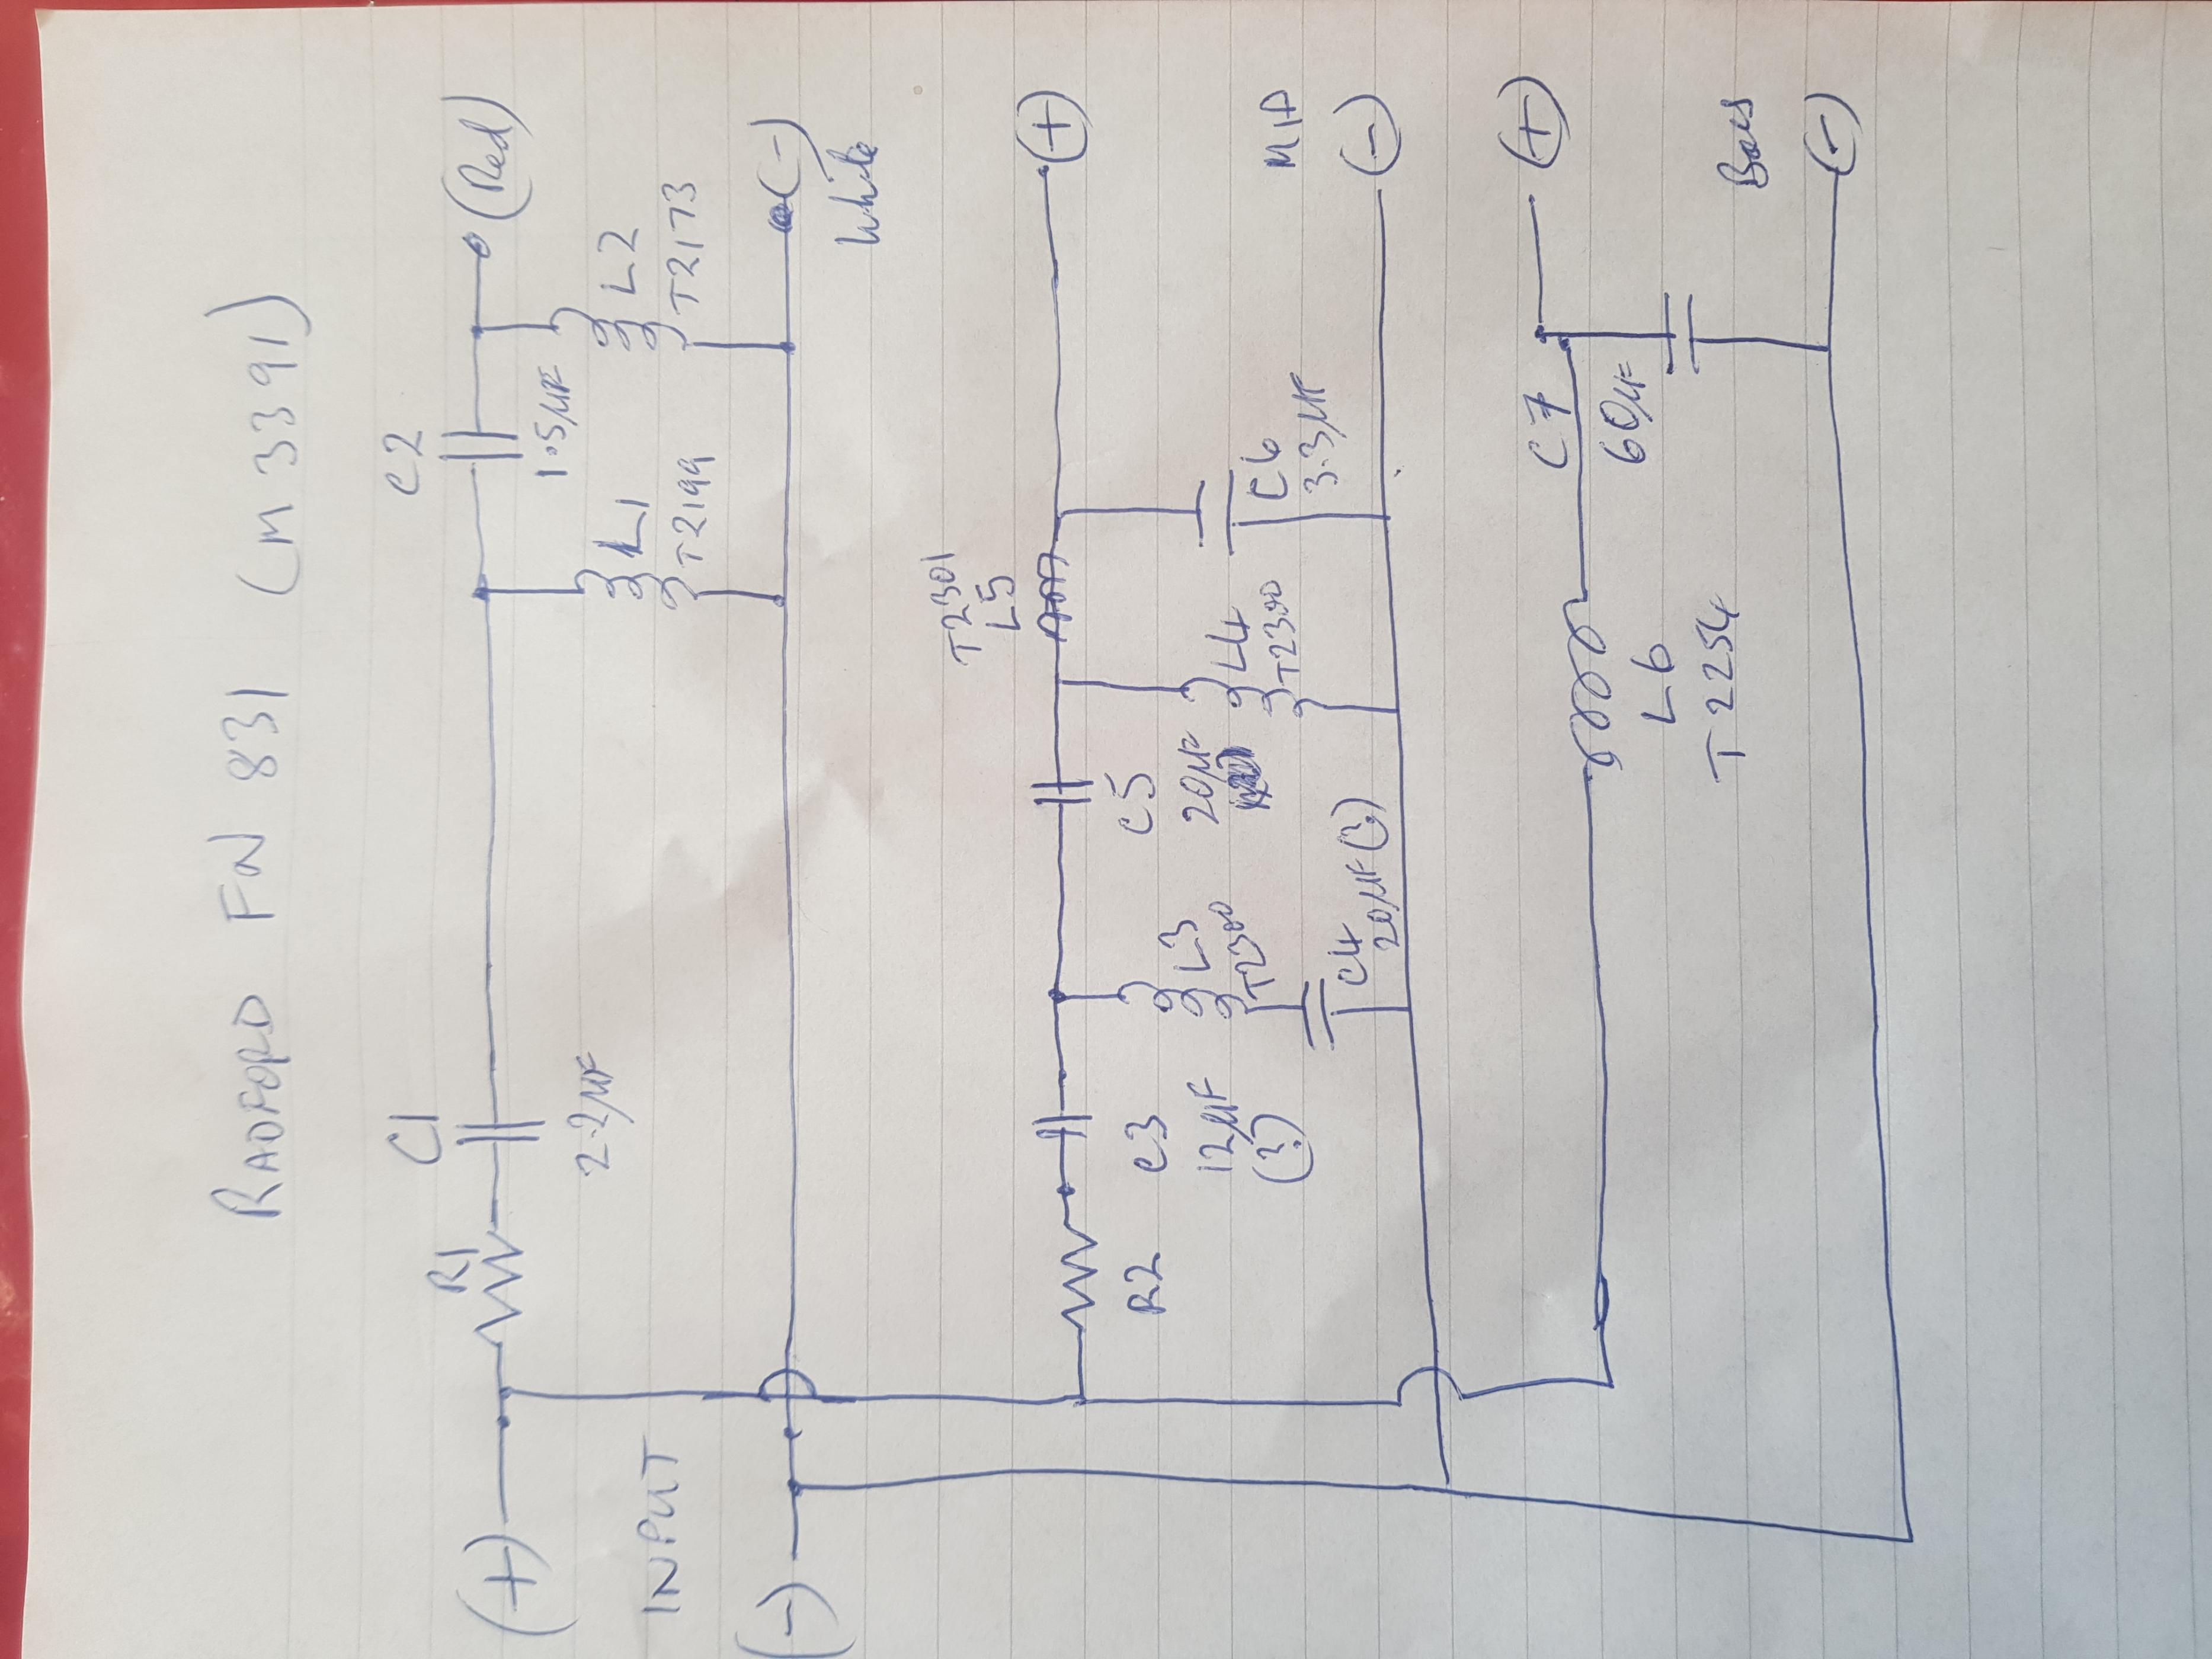 RADFORD FN 831 (M3391)
(+)
R1
C1
2.2µF
C2
1.5µF
(Red)
L1
T2199
L2
T2173
INPUT
(-)
(-)
White
T2301
L5
(+)
R2
C3
12µF
(?)
L3
T2300
C4
20µF(?)
C5
20µF
L4
T2300
C6
3.3µF
MID
(-)
(+)
C7
60µF
L6
T2254
Bass
(-)